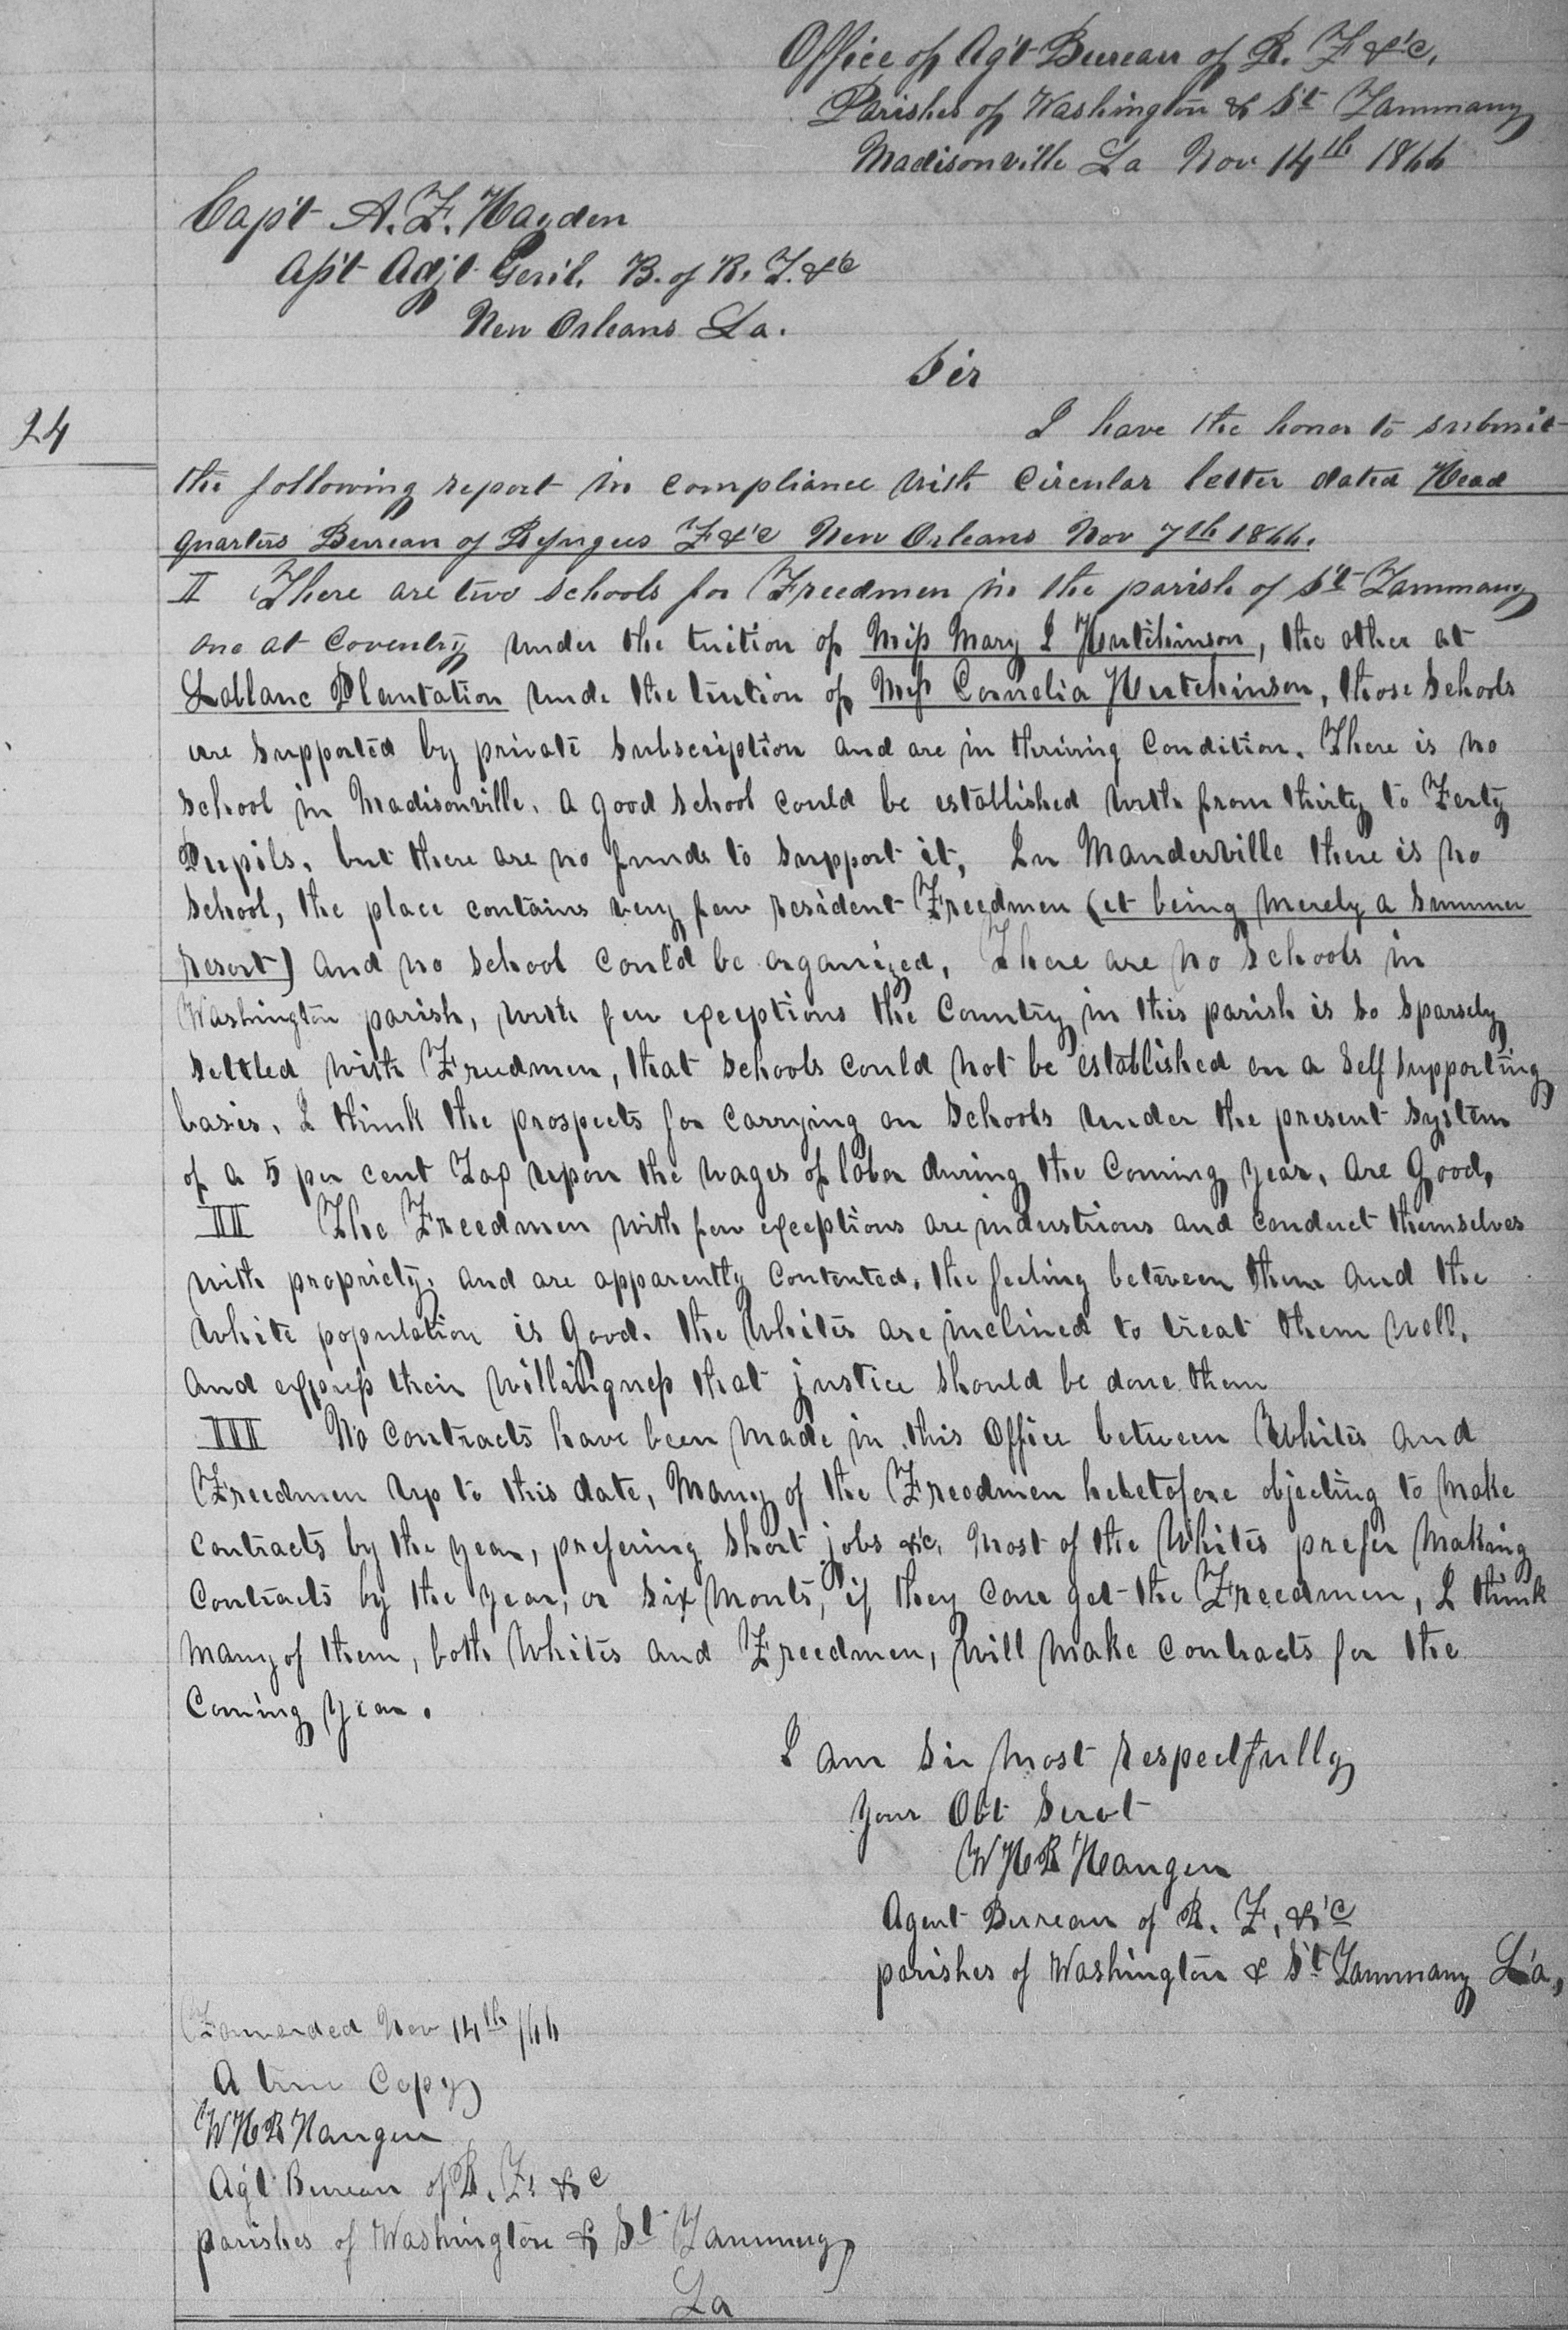 Office of Agt Bureau of R. F &'c.
Parishes of Washington & St Tammany
Madisonville La Nov 14th 1866
Capt A. F. Hayden
Asst Adjt Genl. B. of R. F. &c
New Orleans La.
Sir
24
I have the honor to submit
the following report in compliance with Circular letter dated Head
quarters Bureau of Refugees F &'c New Orleans Nov 7th 1866.
II There are two schools for Freedmen in the parish of St Tammany
one at Coventry under the tuition of Miss Mary I Hutchinson, the other at
Lablanc Plantation unde the tuition of Miss Cornelia Hutchinson, those schools
are supported by private subscription and are in thriving Condition. There is no
school in Madisonville. a good school could be established with from thirty to Forty
Pupils. but there are no funds to support it, In Manderville there is no
School, the place contains very few resident Freedmen (it being merely a summer
resort) and no school could be organized. There are no schools in
Washington parish, with few exceptions the Country in this parish is so sparsely
settled with Freedmen, that schools could not be established on a self supporting
basis. I think the prospects for carrying on schools under the present system
of a 5 per cent Tax upon the wages of labor during the Coming year, are Good.
II The Freedmen with few exceptions are industrious and conduct themselves
with propriety. and are apparently contented. the feeling between them and the
white population is Good. the Whites are inclined to treat them well.
and express their willingness that justice should be done them
III No contracts have been made in this Office between Whites and
Freedmen up to this date, Many of the Freedmen heretofore objecting to make
contracts by the year, prefering short jobs &c. Most of the Whites prefer making
contracts by the year, or six Monts, if they can get the Freedmen, I think
many of them, both Whites and Freedmen, will make contracts for the
Coming year.
I am Sir Most respectfully
your Obt Servt
W H R Hangen
Agent Bureau of R. F. &'c
parishes of Washington & St Tammany La,
Forwarded Nov 14th /66
A true Copy
W H R Hangen
Agt Bureau of R. F. & c
parishes of Washington & St Tammany
La